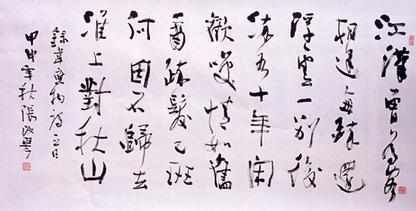 江漢曾為客
相逢每醉還
浮雲一別後
流水十年間
歡笑情如舊
蕭疏鬢已斑
何因不歸去
淮上對秋山
錄韋應物詩
甲申年秋張